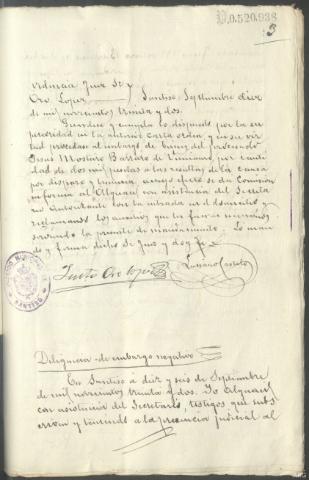 D0.520.938
3
Juez Sr
Oro Lopez Sandiás Septiembre diez
de mil novecientos treinta y dos.
Guardese y cumpla lo dispuesto por la su
perioridad en la anterior carta orden, y en su vir
tud procedase al embargo de bienes del procesado
Mosteiro por canti
dad de dos mil pesetas a las resultas de la causa
por disparo y lesiones, a cuyo efecto se da Comision
en forma al Alguacil con asistencia del Secreta
rio Autorizante con la entrada en el domicilio y
reclamando los auxilios que les fueren necesarios
sirviendo la presente de mandamiento. Lo man
da y firma dicho Sr Juez y doy fe
Justo Oro Lopez
Diligencia de embargo negativo
En Sandiás a diez y seis de Septiembre
de mil novecientos treinta y dos. Yo Alguacil
con asistencia del Secretario, testigos que subs
criben y teniendo a la presencia judicial al